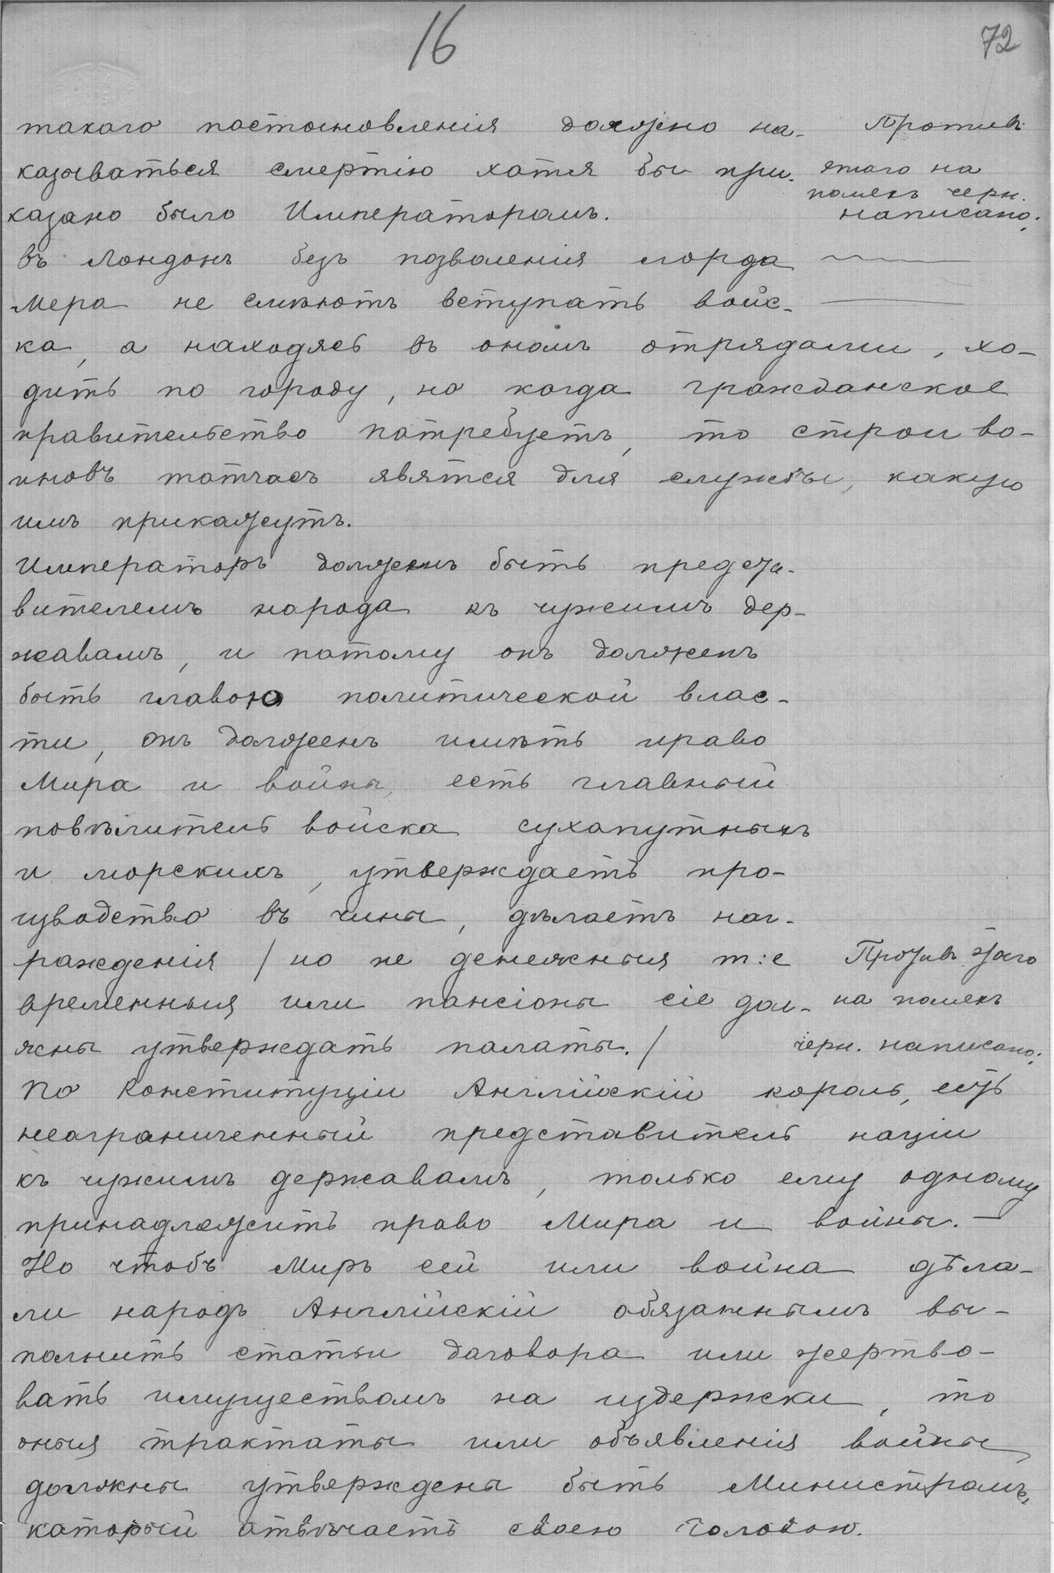 16
72
такаго постановленія должно на-
казываться смертію хотя бы при-
казано было Императоромъ.
Противъ
этаго на
полѣхъ черн.
написано:
въ Лондонъ безъ позволенія лорда
мера не смѣютъ вступать войс-
ка, а находясь въ ономъ отрядами, хо-
дить по городу, но когда гражданское
правительство потребуетъ, то строи во-
иновъ тотчасъ явятся для службы, какую
имъ прикажутъ.
Императоръ долженъ быть предста-
вителемъ народа къ чужимъ дер-
жавамъ, и потому онъ долженъ
быть главою политической влас-
ти, онъ долженъ имѣть право
Мира и войны, есть главный
повѣлитель войска сухапутныхъ
и морскихъ, утверждаетъ про-
изводство въ чины, дѣлаетъ наг-
ражденія / но не денежныя т:е
временныя или пансіоны сіе дол-
жны утверждать палаты. /
Противъ этаго
на полѣхъ
черн. написано:
По Конституціи Англійскій король, есть
неограниченный представитель націи
къ чужимъ державамъ, только ему одному
принадлежитъ право Мира и войны. —
Но чтобъ Миръ сей или война дѣла-
ли народъ Англійскій обязаннымъ вы-
полнить статьи договора или жертво-
вать имуществомъ на издержки, то
оныя трактаты или объявленія войны
должны утверждены быть Министромъ,
каторый отвѣчаетъ своею головою.